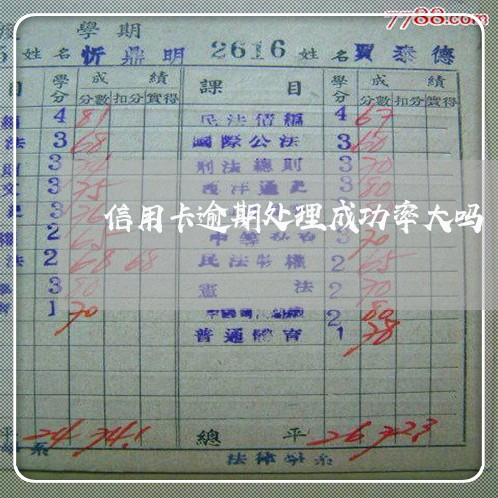 7788.com
學期
姓名 忻鼎明 2616 姓名 賈泰德
目 學分 成績 課目 學分 成績
分數 扣分 實得 分數 扣分 實得
4 81 民法債編 4 67
法 3 68 國際公法 3 60
3 刑法總則 3 70
3 75 西洋通史 3 80
信用卡逾期处理成功率大吗
2 65 3 70
法 2 68 68 民法物權 2 65
3 80 憲法 2 70
1 70 2 80
普通體育 1 78
平 24 74.1 總平 26 72.3
系 法律學系